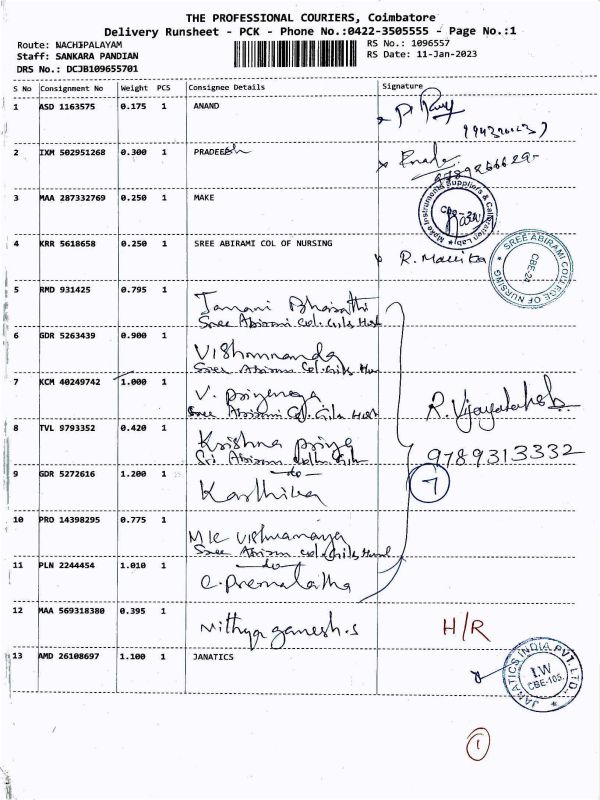 THE PROFESSIONAL COURIERS, Coimbatore
Delivery Runsheet - PCK - Phone No.:0422-3505555 - Page No.:1
Route: NACHIPALAYAM
RS No.: 1096557
Staff: SANKARA PANDIAN
RS Date: 11-Jan-2023
DRS No.: DCJB109655701
S No Consignment No Weight PCS Consignee Details Signature
1 ASD 1163575 0.175 1 ANAND
2 IXM 502951268 0.300 1 PRADEESH
3 MAA 287332769 0.250 1 MAKE
Make Instruments Suppliers & Calibration Lab
4 KRR 5618658 0.250 1 SREE ABIRAMI COL OF NURSING
SREE ABIRAMI COLLEGE OF NURSING
CBE-24
5 RMD 931425 0.795 1 Janani Bharathi
Sree Abirami Col. Girls
6 GDR 5263439 0.900 1
Sree Abirami Col. Girls
7 KCM 40249742 1.000 1 V. Priyenga
Sree Abirami Col. Girls
R. Vijayalakshmi
8 TVL 9793352 0.420 1 Krishna Priya
Sri Abirami
9789313332
9 GDR 5272616 1.200 1 -do-
Karthika
7
10 PRO 14398295 0.775 1
Sree Abirami Col. Girls
11 PLN 2244454 1.010 1 -do-
C. Premalatha
12 MAA 569318380 0.395 1 Nithya ganesh.s
H/R
13 AMD 26108697 1.100 1 JANATICS
JANATICS INDIA PVT. LTD.
I.W
CBE-105.
1